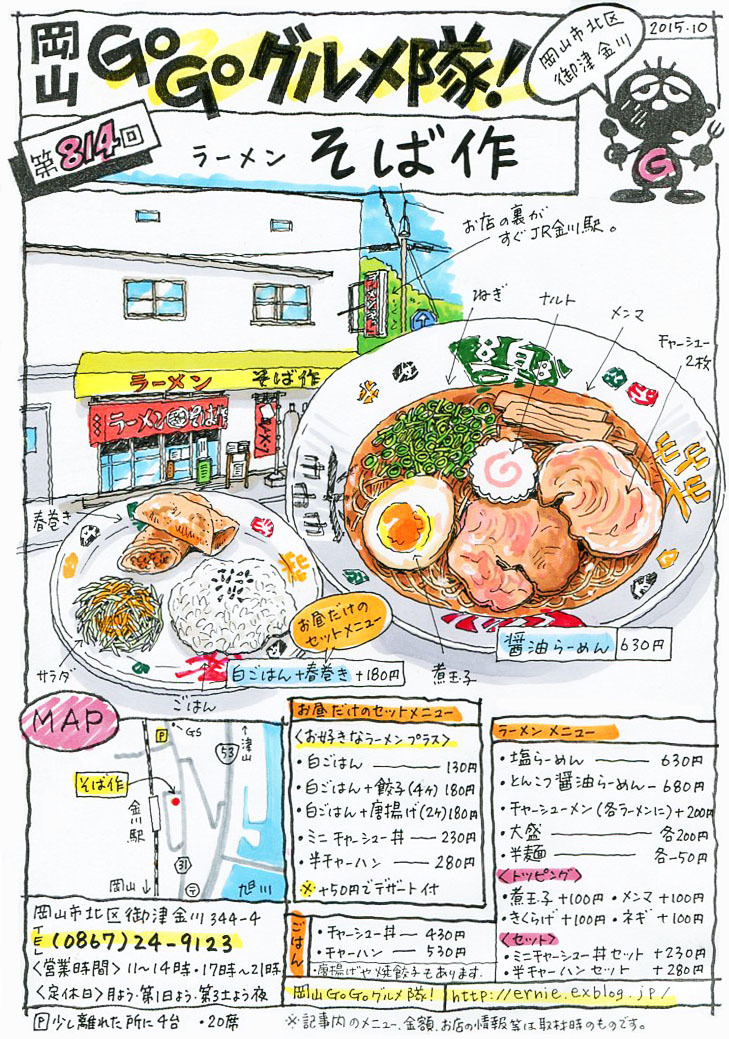 岡山 GoGoグルメ隊!
岡山市北区
御津金川
2015.10
G
第814回
ラーメン そば作
お店の裏が
すぐJR金川駅。
ラーメン そば作
ラーメン
ねぎ
ナルト
メンマ
チャーシュー
2枚
春巻き
サラダ
ごはん
お昼だけの
セットメニュー
白ごはん+春巻き +180円
煮玉子
醤油らーめん 630円
MAP
P
GS
↑津山
53
そば作
金川駅
31
岡山↓
〒
旭川
お昼だけのセットメニュー
<お好きなラーメンプラス>
・白ごはん —— 130円
・白ごはん+餃子(4ヶ) 180円
・白ごはん+唐揚げ(2ヶ)180円
・ミニチャーシュー丼 — 230円
・半チャーハン —— 280円
※+50円でデザート付
ごはん
・チャーシュー丼 — 430円
・チャーハン —— 530円
・唐揚げや焼餃子もあります.
ラーメンメニュー
・塩らーめん —— 630円
・とんこつ醤油らーめん — 680円
・チャーシューメン(各ラーメンに)+200円
・大盛 —— 各200円
・半麺 —— 各-50円
<トッピング>
・煮玉子 +100円 ・メンマ +100円
・きくらげ +100円 ・ネギ +100円
<セット>
・ミニチャーシュー丼セット +230円
・半チャーハンセット +280円
岡山市北区御津金川344-4
TEL (0867)24-9123
<営業時間> 11〜14時・17時〜21時
<定休日>月よう・第1日よう・第3土よう夜
P 少し離れた所に4台 ・20席
岡山GoGoグルメ隊! http://ernie.exblog.jp/
※記事内のメニュー、金額、お店の情報等は取材時のものです。